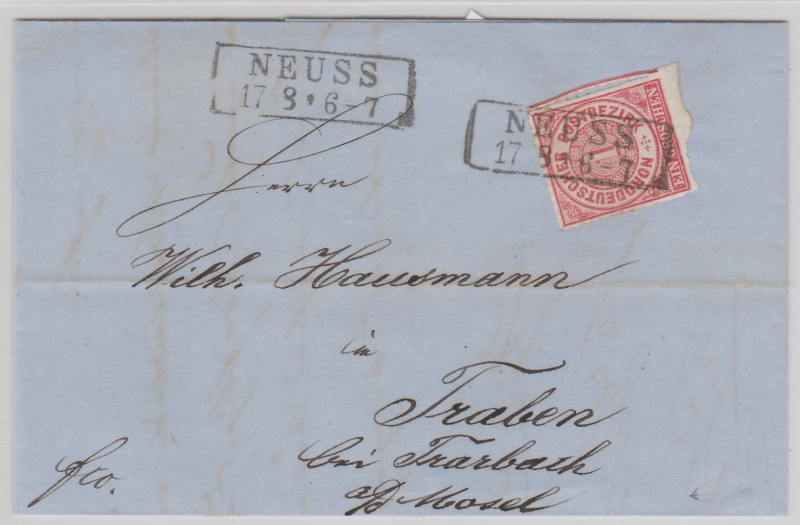 NEUSS
17 8 • 6-7
NEUSS
17 8 6-7
NORDDEUTSCHER POSTBEZIRK
1
EIN GROSCHEN
Herrn
Wilh. Hausmann
in
Traben
bei Trarbach
a/d Mosel
fco.